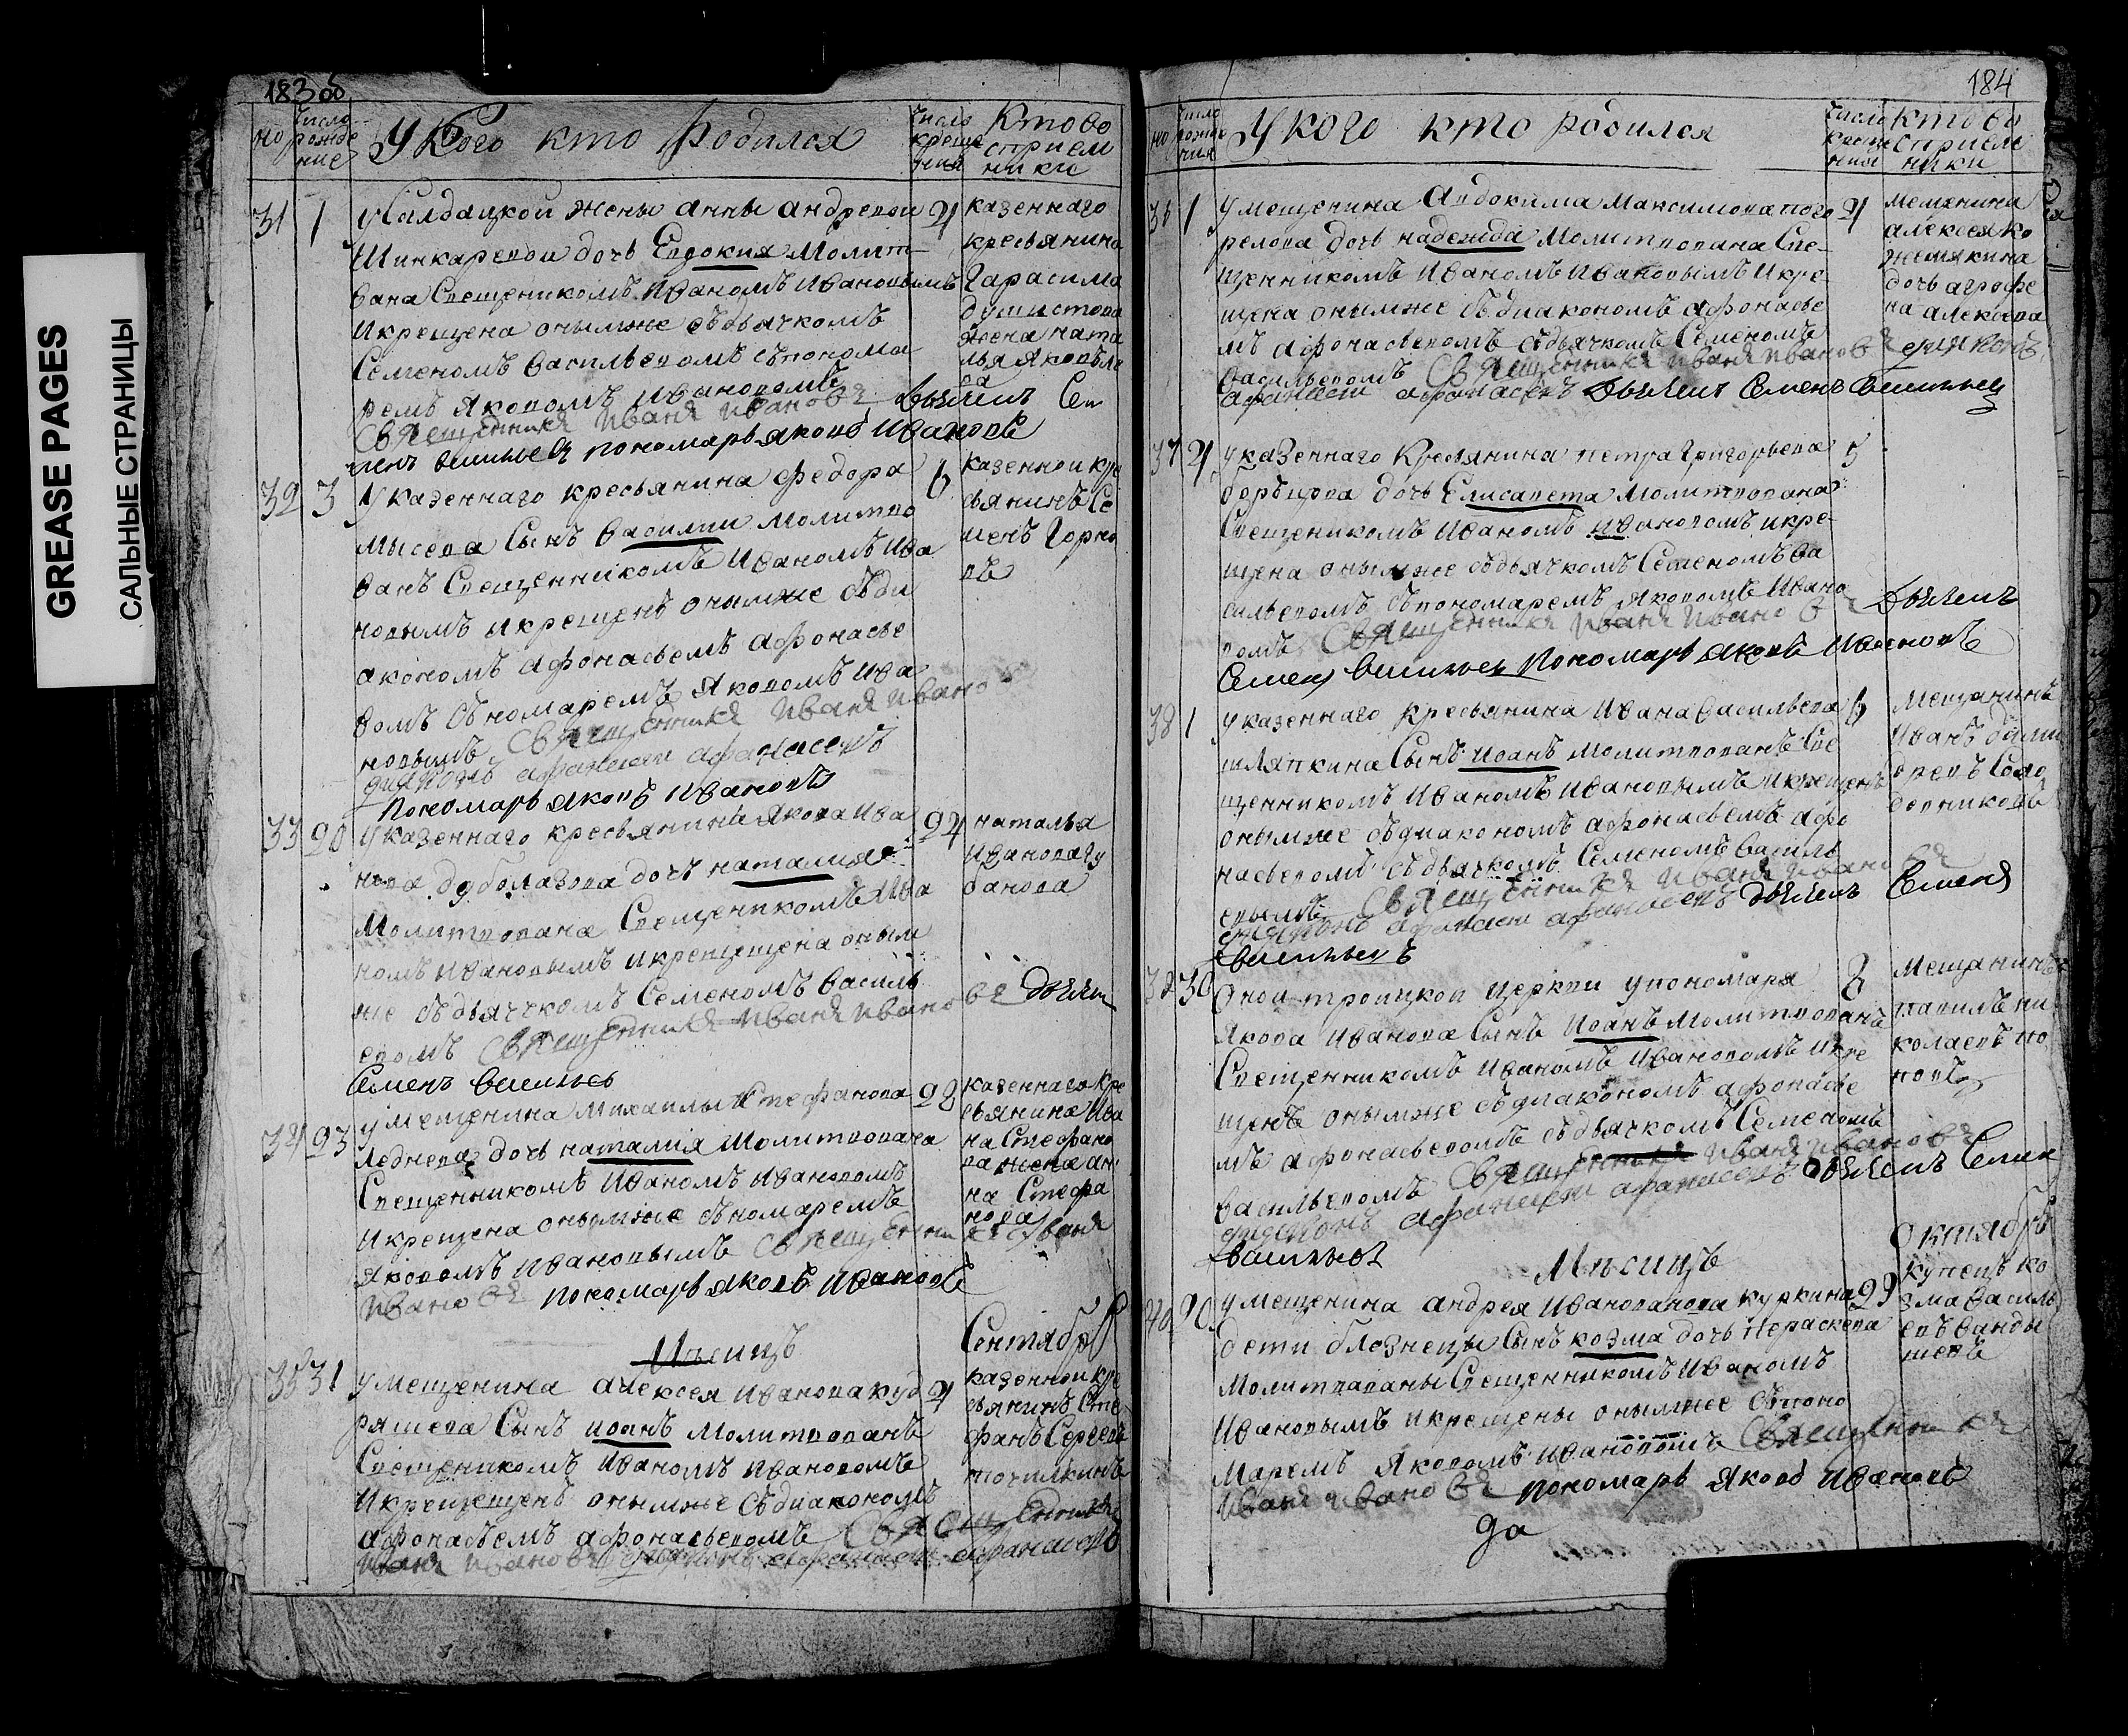 GREASE PAGES
САЛЬНЫЕ СТРАНИЦЫ
183 об
но
число рожде ние
У Кого кто родился
число креще ния
Кто во сприем ники
31 1 У Салдацкой жены Анны Андреевой 4
Шинкаревой дочь Евдокия молит-
вана Священиком Иваномъ Ивановымъ
и крещена онымже съ дьячкомъ
Семеномъ Васильевомъ съ понома
ремъ Яковомъ Ивановомъ
Священникъ Иванъ Ивановъ Дьячекъ Се
менъ Васильевъ пономарь Яковъ Ивановъ
казеннаго
кресьянина
Гарасима
жена ната
лья Яковле
ва
32 3 У казеннаго кресьянина федора 6
Мысева Сынъ Василии молитво
ванъ Священникомъ Иваномъ Ива
новымъ и крещенъ онымже съ ди
акономъ Афонасьемъ Афонасье
вомъ съ номаремъ Яковомъ Ива
новымъ Священникъ Иванъ Ивановъ
диаконъ афанасии афанасевъ
пономарь Яковъ Ивановъ
казеннои кре
сьянинъ Се
менъ Горно
въ
33 20 У казеннаго кресьянина Якова Ива 24
нова дуболазова дочь наталия
Молитвована Священикомъ Ива
номъ Ивановымъ и крещещена оным
же съ дьячкомъ Семеномъ Василь
евомъ Священникъ Иванъ Ивановъ дьячекъ
Семенъ Васильевъ
наталья
Ивановагу
банова
34 23 у мещенина Михаилы Стефанова 28
Леднева дочь наталия Молитвована
Священникомъ Иваномъ Ивановомъ
и крещена онымже съ номаремъ
Яковомъ Ивановымъ Священникъ Иванъ
Ивановъ пономарь Яковъ Ивановъ
казеннаго кре
сьянина Ива
на Стефано
ва жена ан
на Стефа
нова
Мѣсицъ Сентябрь
35 31 у мещенина Алексея Иванова куд 4
ряшева Сынъ иоанъ Молитвованъ
Священикомъ Иваномъ Ивановомъ
и крещещенъ онымже съ диакономъ
афонасьемъ афонасьевомъ Священникъ
Иванъ Ивановъ диаконъ афанасии афанасевъ
казеннои кре
сьянинъ Сте
фанъ Сергевъ
точилкинъ
184
но
число рожде ния
У кого кто родился
число креще ния
кто во сприем ники
36 1 у мещенина Авдокима Максимова пого 4
релова дочь надежда Молитвована Све-
щенникомъ Иваномъ Ивановымъ и кре-
щена онымже съ диакономъ афонасье
мъ афонасьевомъ съ дьячкомъ Семеномъ
Васильевомъ Священникъ Иванъ Ивановъ диаконъ
афанасии афанасевъ Дьячекъ Семенъ Васильевъ
мещенина
алексея ко
жемякина
дочь агрофе
на алексева
37 4 у казеннаго Кресьянина петра Григорьева 5
дочь Елисавета Молитвована
Священикомъ Иваномъ Ивановомъ и кре-
щена онымже съ дьячкомъ Семеномъ Ва
сильевомъ съ пономаремъ Яковомъ Ивано
вомъ Священникъ Иванъ Ивановъ Дьячекъ
Семенъ Васильевъ Пономарь Яковъ Ивановъ
38 1 у казеннаго кресьянина Ивана Васильева 6
шляпкина Сынъ иоанъ молитвованъ Све
щенникомъ Иваномъ Ивановымъ и крещенъ
онымже съ диакономъ афонасьемъ афо
насьевомъ съ дьячкомъ Семеномъ Василь
евымъ Священникъ Иванъ Ивановъ
диаконъ афанасии афанасевъ дьячекъ Семенъ
Васильевъ
Мещанинъ
Иванъ
Садо
вниковъ
39 30 Онои троицкои церкви у пономаря 8
Якова Иванова Сынъ Иоанъ Молитвованъ
Священникомъ Иваномъ Ивановомъ и кре
щенъ онымже съ диакономъ афонасье
мъ афонасьевомъ съ дьячкомъ Семеномъ
Васильевомъ Священникъ Иванъ Ивановъ
диаконъ афанасии афанасевъ дьячекъ Семен
Васильевъ
Мещанинъ
павилъ ни
колаевъ по
повъ
Мѣсицъ Октябрь
40 20 у мещенина андрея Иванованова куркина 23
дети близнецы Сынъ козма дочь Пераскева
Молитвованы Священникомъ Иваномъ
Ивановымъ и крещены онымже съ поно
маремъ Яковомъ Ивановомъ Священникъ
Иванъ Ивановъ пономарь Яковъ Ивановъ
купецъ ко
зма Василь
евъ Ванды
шевъ